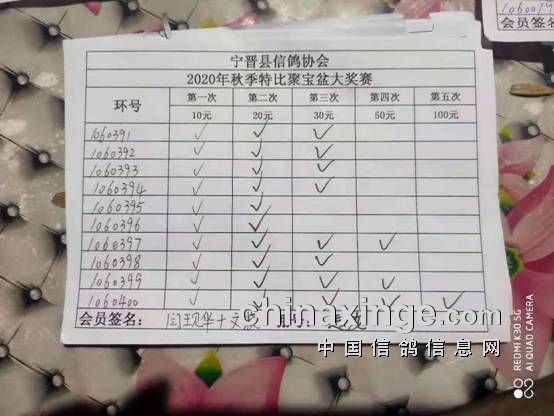 106001
会员签
宁晋县信鸽协会
2020年秋季特比聚宝盆大奖赛
环号 第一次 第二次 第三次 第四次 第五次
10元 20元 30元 50元 100元
1060391 ✓ ✓ ✓
1060392 ✓ ✓ ✓
1060393 ✓ ✓ ✓
1060394 ✓ ✓ ✓
1060395 ✓ ✓
1060396 ✓ ✓
1060397 ✓ ✓ ✓ ✓
1060398 ✓ ✓ ✓
1060399 ✓ ✓ ✓ ✓
1060400 ✓ ✓ ✓ ✓ ✓
会员签名:
chinaxinge.com
中国信鸽信息网
REDMI K30 5G
AI QUAD CAMERA